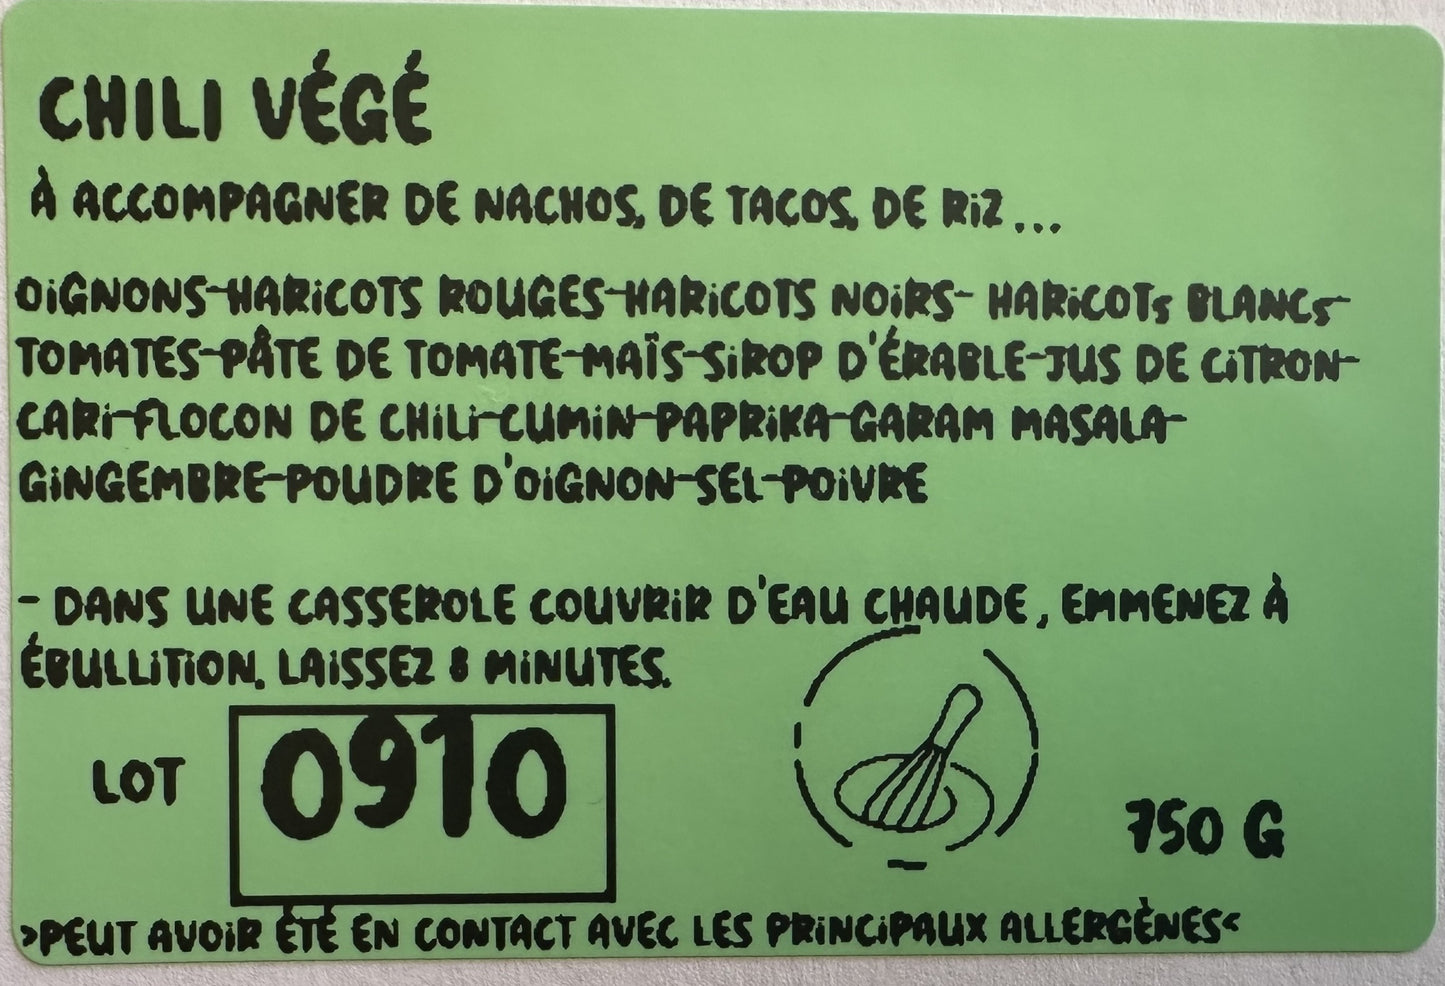 CHILI VÉGÉ
À ACCOMPAGNER DE NACHOS, DE TACOS, DE RIZ...
OIGNONS-HARICOTS ROUGES-HARICOTS NOIRS- HARICOTS BLANCS-
TOMATES-PÂTE DE TOMATE-MAÏS-SIROP D'ÉRABLE-JUS DE CITRON-
CARI-FLOCON DE CHILI-CUMIN-PAPRIKA-GARAM MASALA-
GINGEMBRE-POUDRE D'OIGNON-SEL-POIVRE
- DANS UNE CASSEROLE COUVRIR D'EAU CHAUDE, EMMENEZ À
ÉBULLITION. LAISSEZ 8 MINUTES.
LOT 0910
750 G
>PEUT AVOIR ÉTÉ EN CONTACT AVEC LES PRINCIPAUX ALLERGÈNES<